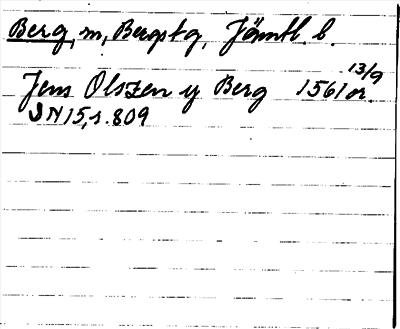 Berg, m, Bergs tg, Jämtl. l.
Jens Olszen y Berg 1561 13/9 or.
DN 15, s. 809